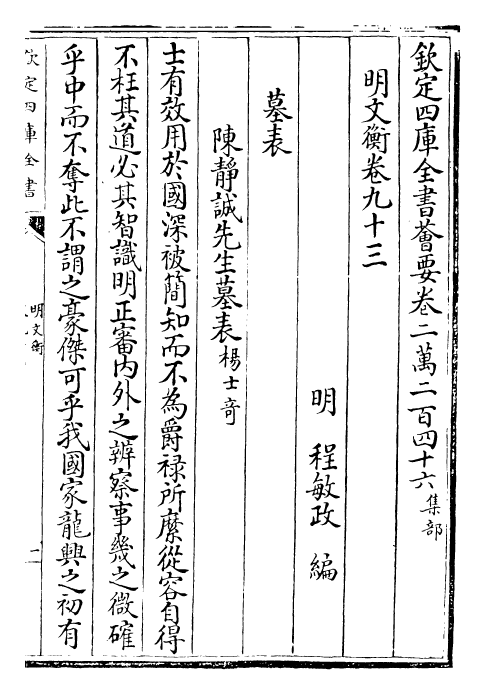 欽定四庫全書薈要卷二萬二百四十六集部
明文衡卷九十三
明程敏政編
墓表
陳靜誠先生墓表楊士奇
士有效用於國深被簡知而不為爵禄所縻從容自得
不枉其道必其智識明正審内外之辨察事幾之微確
乎中而不奪此不謂之豪傑可乎我國家龍興之初有
欽定四庫全書
明文衡